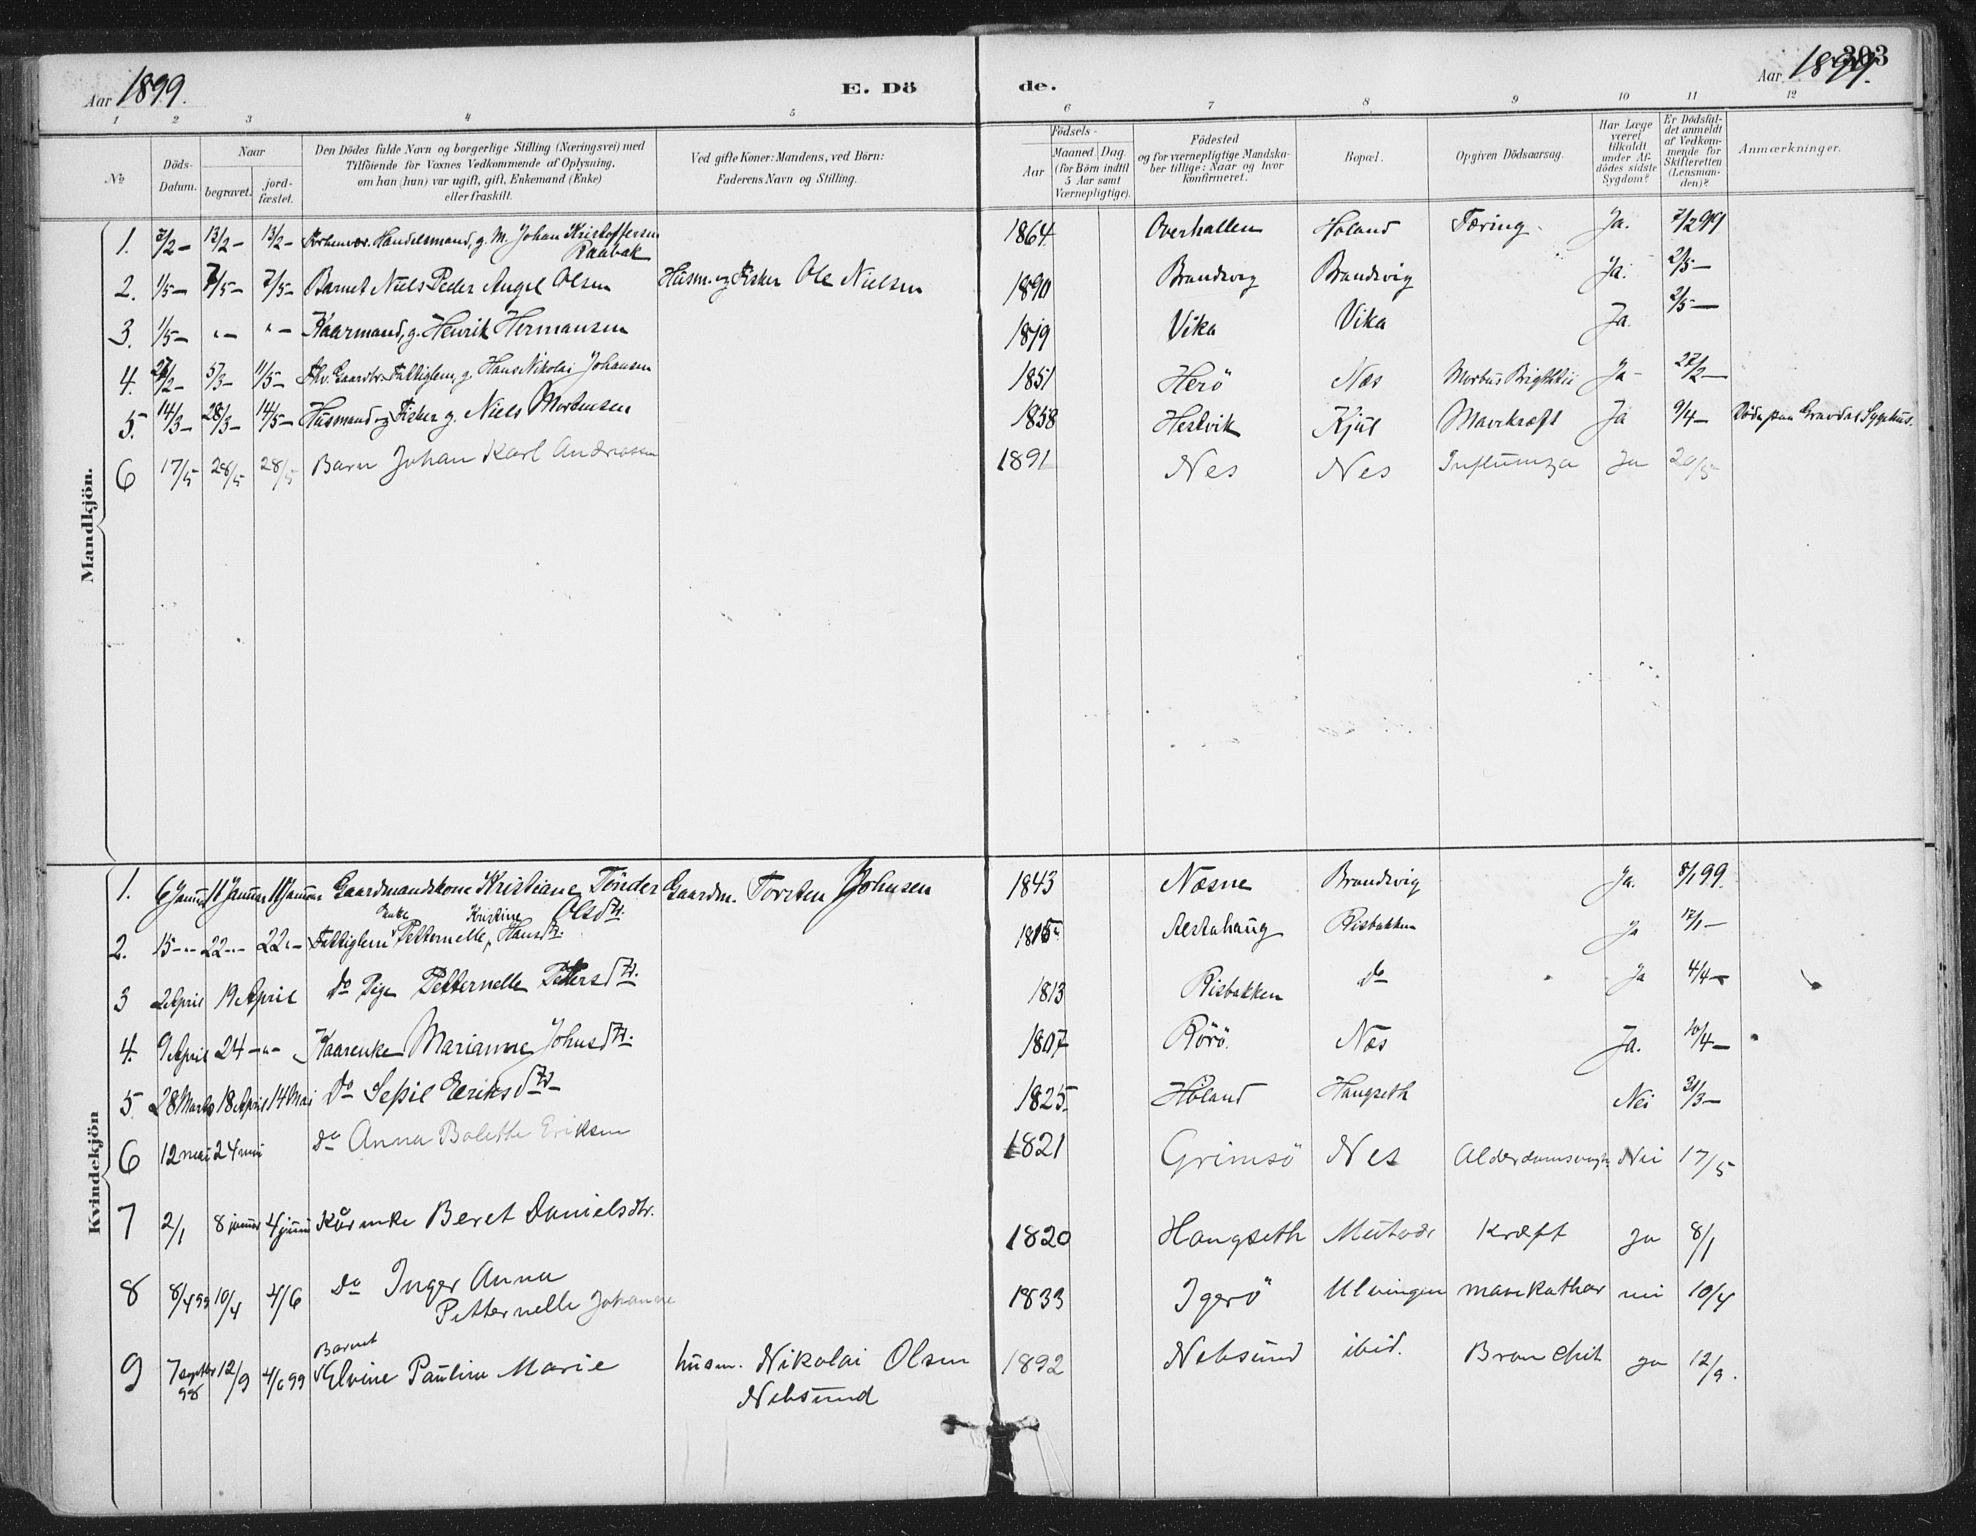 303
Aar 1899.
E. Dö
de.
Aar 1899.
1 2 3 4 5 6 7 8 9 10 11 12
No
Döds-Datum.
Naar
begravet.
jord-fæstet.
Den Dödes fulde Navn og borgerlige Stilling (Næringsvei) med
Tilföiende for Voxnes Vedkommende af Oplysning,
om han (hun) var ugift, gift, Enkemand (Enke)
eller fraskilt.
Ved gifte Koner: Mandens, ved Börn:
Faderens Navn og Stilling.
Födsels-
Aar
Maaned. Dag.
(for Börn indtil
5 Aar samt
Værnepligtige).
Födested
og for værnepligtige Mandska-
ber tillige: Naar og hvor
konfirmeret.
Bopæl.
Opgiven Dödsaarsag.
Har Læge
været
tilkaldt
under Af-
dödes sidste
Sygdom?
Er Dödsfal-
det anmeldt
af Vedkom-
mende for
Skifteretten
(Lensman-
den)?
Anmærkninger.
Mandkjön.
1. 3/2 – 13/2 – 13/2 – Handelsmand, g. M. Johan Kristoffersen 1864 Overhallen Høland Tæring. Ja. 7/2 99
Raabak
2. 1/5 – 7/5 – 7/5 – Barnet Niels Peder Angel Olsen Husm. og Fisker Ole Nielsen 1890 Brandsvig Brandsvig Ja. 2/5 –
3. 1/5 – "– "– Kaarmand, g. Henrik Hermansen 1819 Vika Vika Ja. 2/5 –
4. 5/3 – 11/5 – Fattiglem, g. Hans Nikolai Johansen 1851 Herö Næs Morbus Brigthkii Ja – 27/2 –
5. 14/3 – 28/3 – 14/5 – Husmand og Fisker g. Niels Mortensen 1858 Hestvik Kjul Mavekræft Ja 9/4 – Döde paa Gravdal Sygehus.
6 17/5 28/5 28/5 Barn Johan Karl Andreasen 1891 Nes Nes Influenza Ja 20/5
Kvindekjön
1. 6 Januar 11 Januar 11 Januar Gaardmandskone Kristiane Tönder Gaardm. Torsten Johnsen 1843 Næsne Brandsvig Ja. 8/1 99.
Olsdtr.
2. 15 –"– 22 –"– 22 "– Fattiglem Enke Petternelle Kristine Hansdtr. 1815 Alstahaug Risbakken Ja 17/1 –
3 2 April 19 April Do Pige Petternelle Petersdtr. 1813 Risbakken Do Ja 4/4 –
4. 9 April 24 –"– Kaarenke Marianne Johnsdtr. 1807 Rörö. Næs Ja. 10/4 –
5. 28 Marts 18 April 14 Mai Do Sepil Eriksdtr. 1825 Höland Haugseth Nei 31/3 –
6 12 mai 24 mai Do Anna Bolette Eriksen 1821 Grimsö Nes Alderdomssvagh. Nei 17/5
7 2/1 8 januar 4 juni Kårenke Beret Danielsdtr. 1820 Haugseth Kræft Ja 8/1
8 8/4 99 10/4 4/6 Do Inger Anna 1833 Igerö Ulvingen mavekathar nei 10/4
Petternelle Johanne
9 7 septbr 98 12/9 4/6 99 Barnet Elvine Pauline Marie husm. Nikolai Olsen 1892 Nebsund ibid. Bronchit ja 12/9.
Nebsund